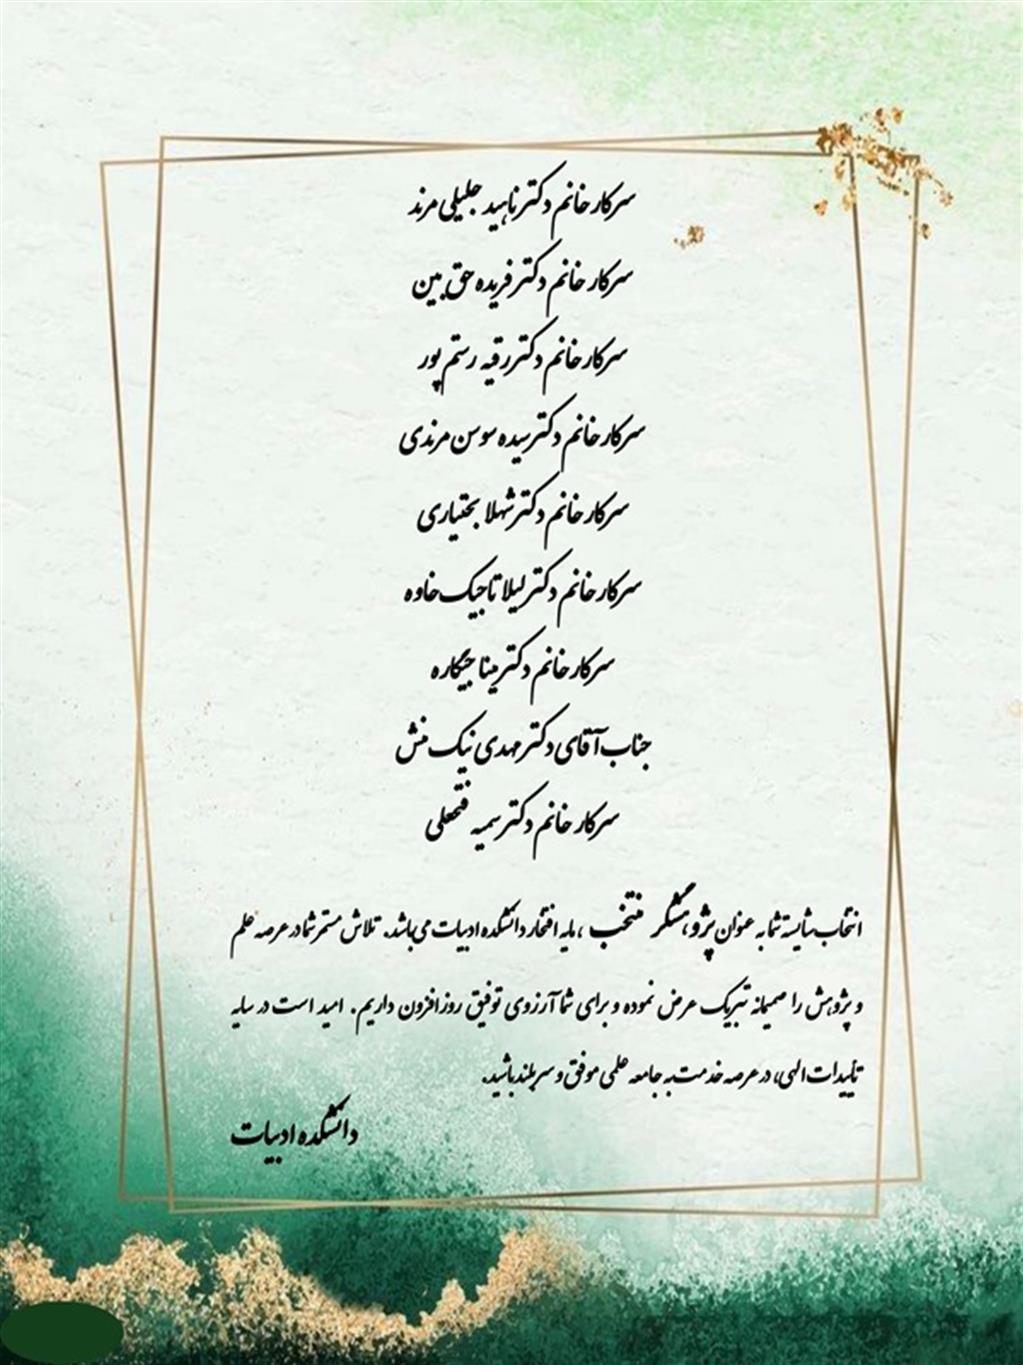 سرکار خانم دکتر ناهید جلیلی مرند
سرکار خانم دکتر فریده حق بین
سرکار خانم دکتر رقیه رستم پور
سرکار خانم دکتر سیده سوسن مرندی
سرکار خانم دکتر شهلا بختیاری
سرکار خانم دکتر لیلا تاجیک خاوه
سرکار خانم دکتر مینا جیگاره
جناب آقای دکتر مهدی نیک منش
سرکار خانم دکتر سمیه فتحعلی
انتخاب شایسته شما به عنوان پژوهشگر منتخب، مایه افتخار دانشکده ادبیات می باشد. تلاش مستمر شما در عرصه علم
و پژوهش را صمیمانه تبریک عرض نموده و برای شما آرزوی توفیق روزافزون داریم. امید است در سایه
تأییدات الهی، در عرصه خدمت به جامعه علمی موفق و سربلند باشید.
دانشکده ادبیات